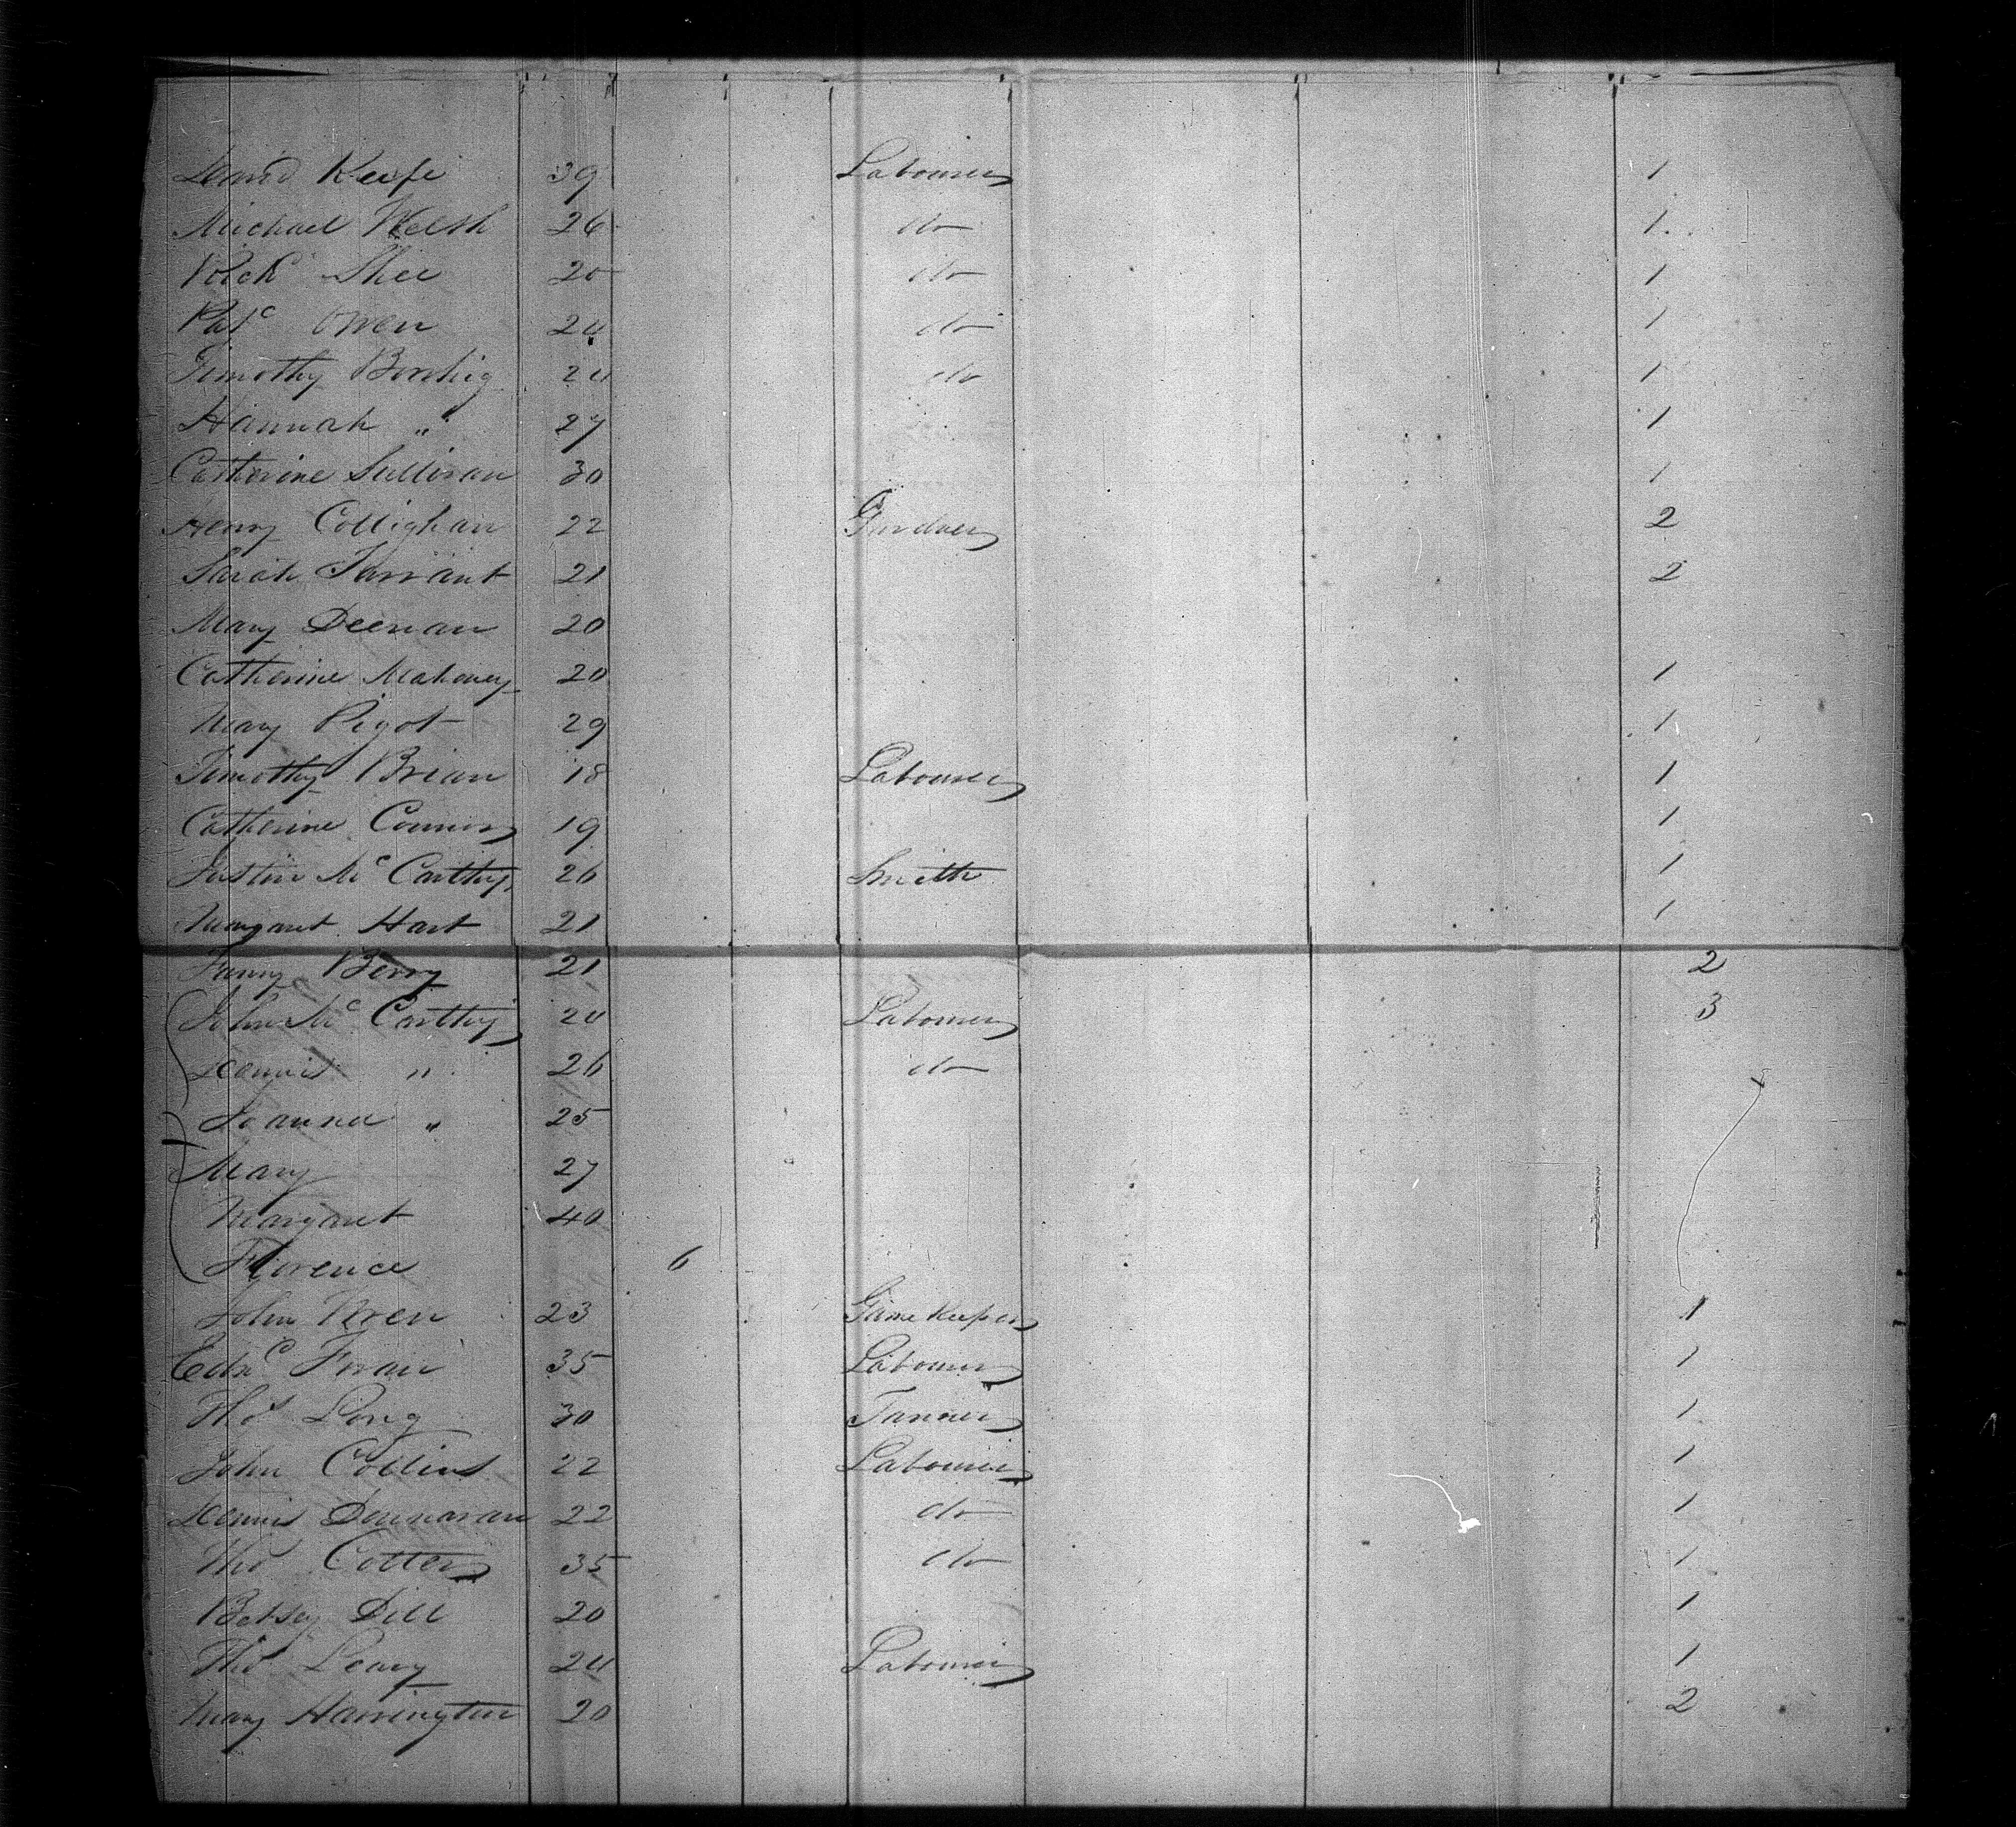 David Keefe 39 Labourer 1
Michael Welsh 26 do 1
Shee 20 do 1
Patc Owen 24 do 1
Timothy 24 do 1
Hannah " 27 1
Catherine Sullivan 30 1
Henry Collighan 22 Gardner 2
Sarah Tarrant 21 2
Mary Deenan 20
Catherine Mahoney 20 1
Mary Pigot 29 1
Timothy Brian 18 Labourer 1
Catherine Connors 19 1
Justin Mc Carthy 26 Smith 1
Margaret Hart 21 1
Fanny Berry 21 2
John Mc Carthy 20 Labourer 3
Dennis " 26 do
Joanna " 25
Mary 27
Margaret 40
Florence 6
John Wren 23 Game Keeper 1
35 Labourer 1
Thos Long 30 Tanner 1
John Collins 22 Labourer 1
Dennis Dennavan 22 do 1
Thos Cotter 35 do 1
Betsey Dill 20 1
Thos Leary 24 Labourer 1
Mary Harrington 20 2